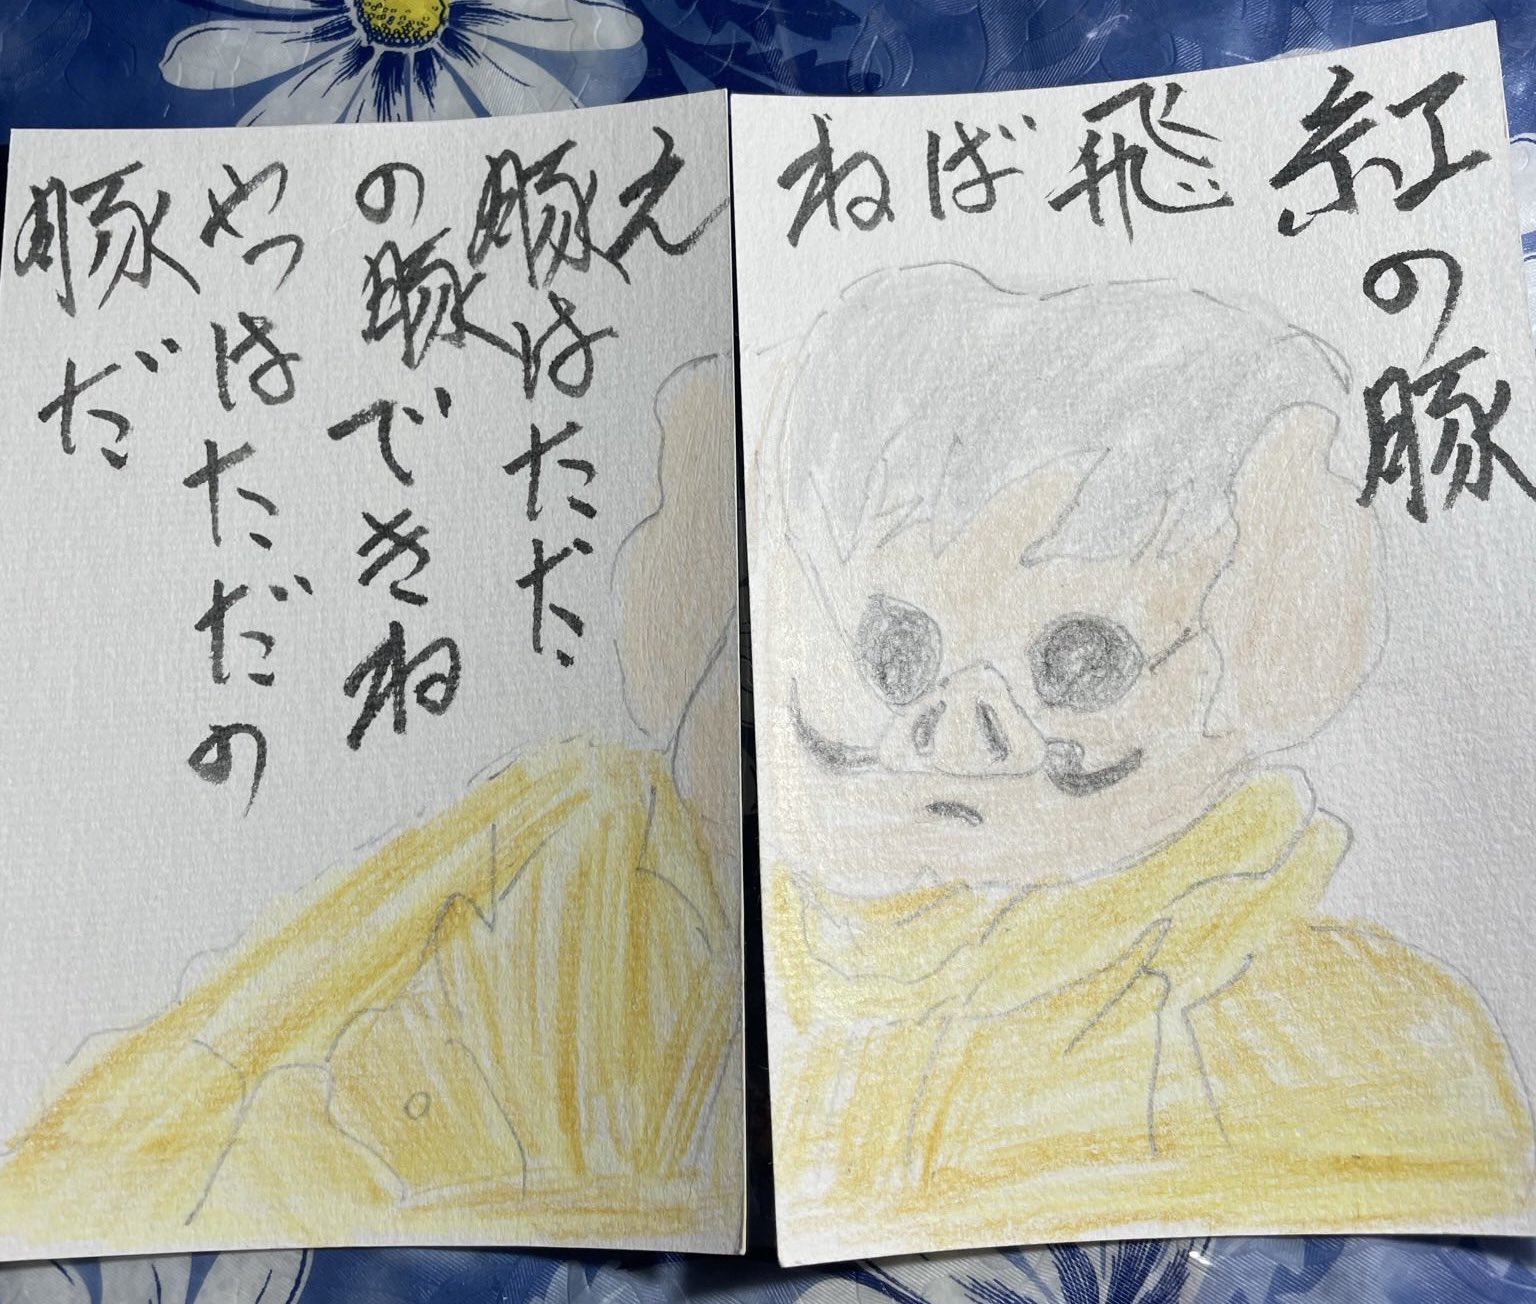 紅の豚
飛ばねえ
豚はただ
の豚できね
やつはただの
豚だ